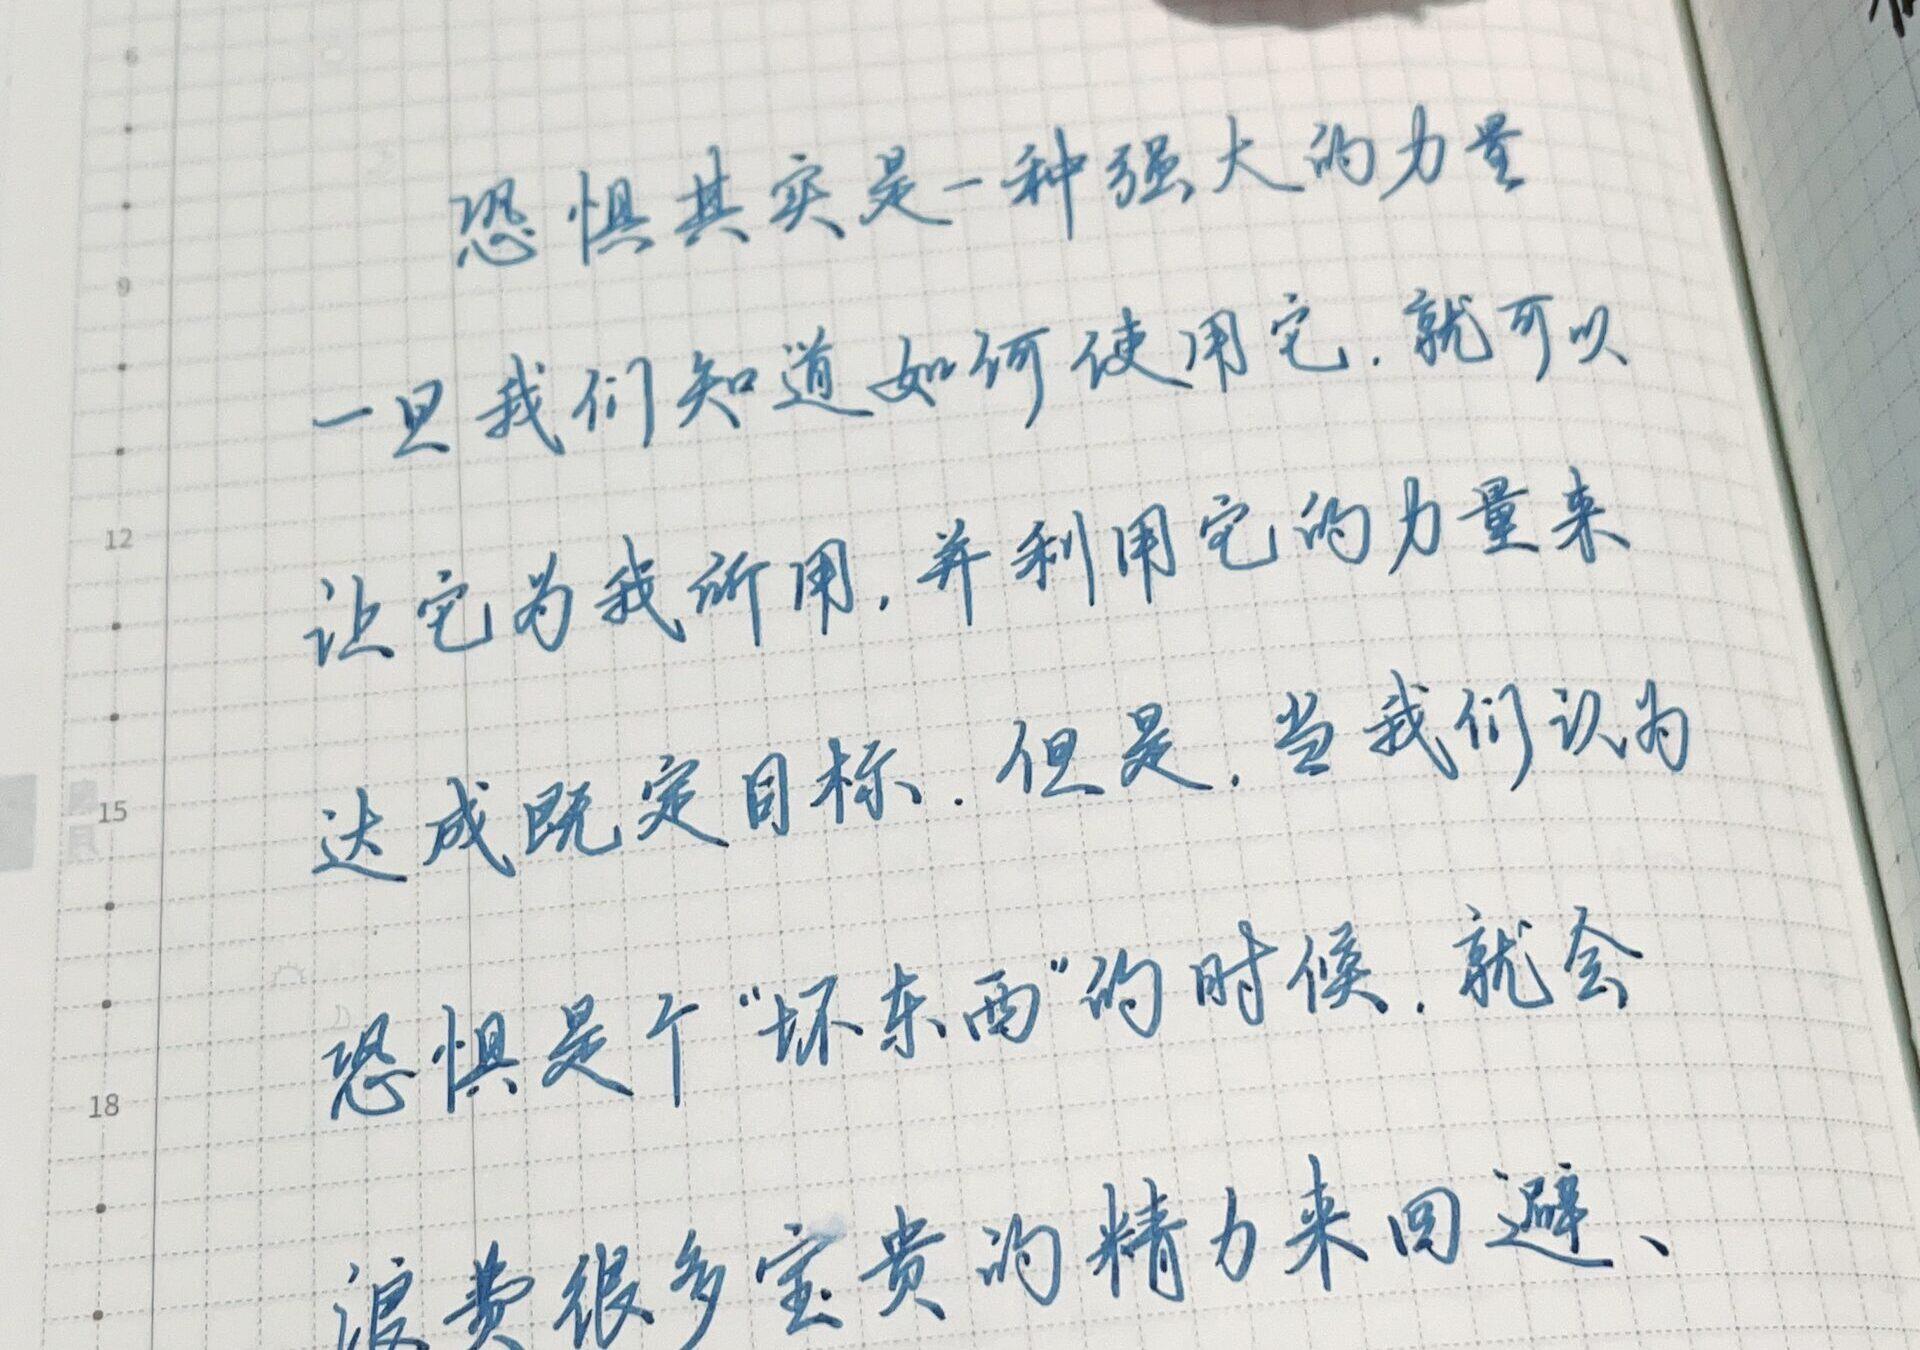 恐惧其实是一种强大的力量
一旦我们知道如何使用它.就可以
让它为我所用,并利用它的力量来
达成既定目标.但是,当我们认为
恐惧是个“坏东西”的时候,就会
浪费很多宝贵的精力来回避、
6
9
12
15
18